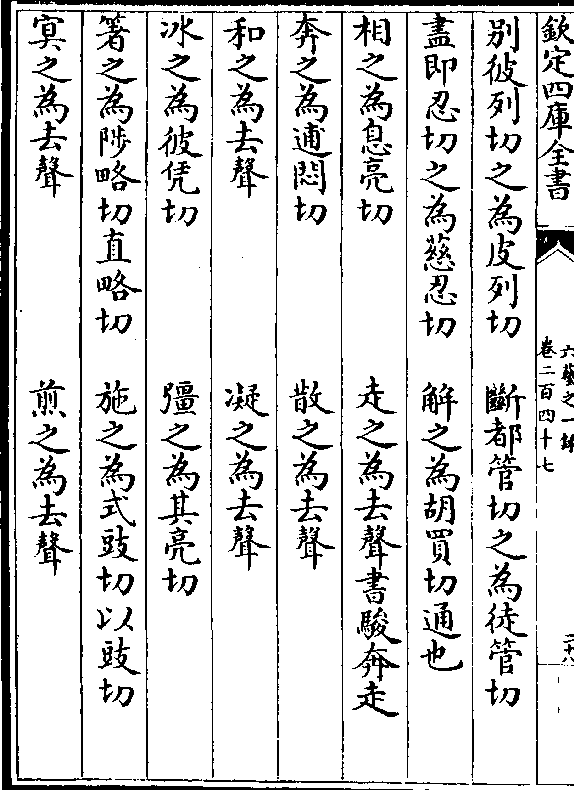 欽定四庫全書
六藝之一錄
卷二百四十七
别彼列切之為皮列切　斷都管切之為徒管切
盡即忍切之為慈忍切　解之為胡買切通也
相之為息亮切　走之為去聲書駿奔走
奔之為逋悶切　散之為去聲
和之為去聲　凝之為去聲
冰之為彼凭切　彊之為其亮切
箸之為陟略切直略切　施之為式豉切以豉切
寘之為去聲　煎之為去聲